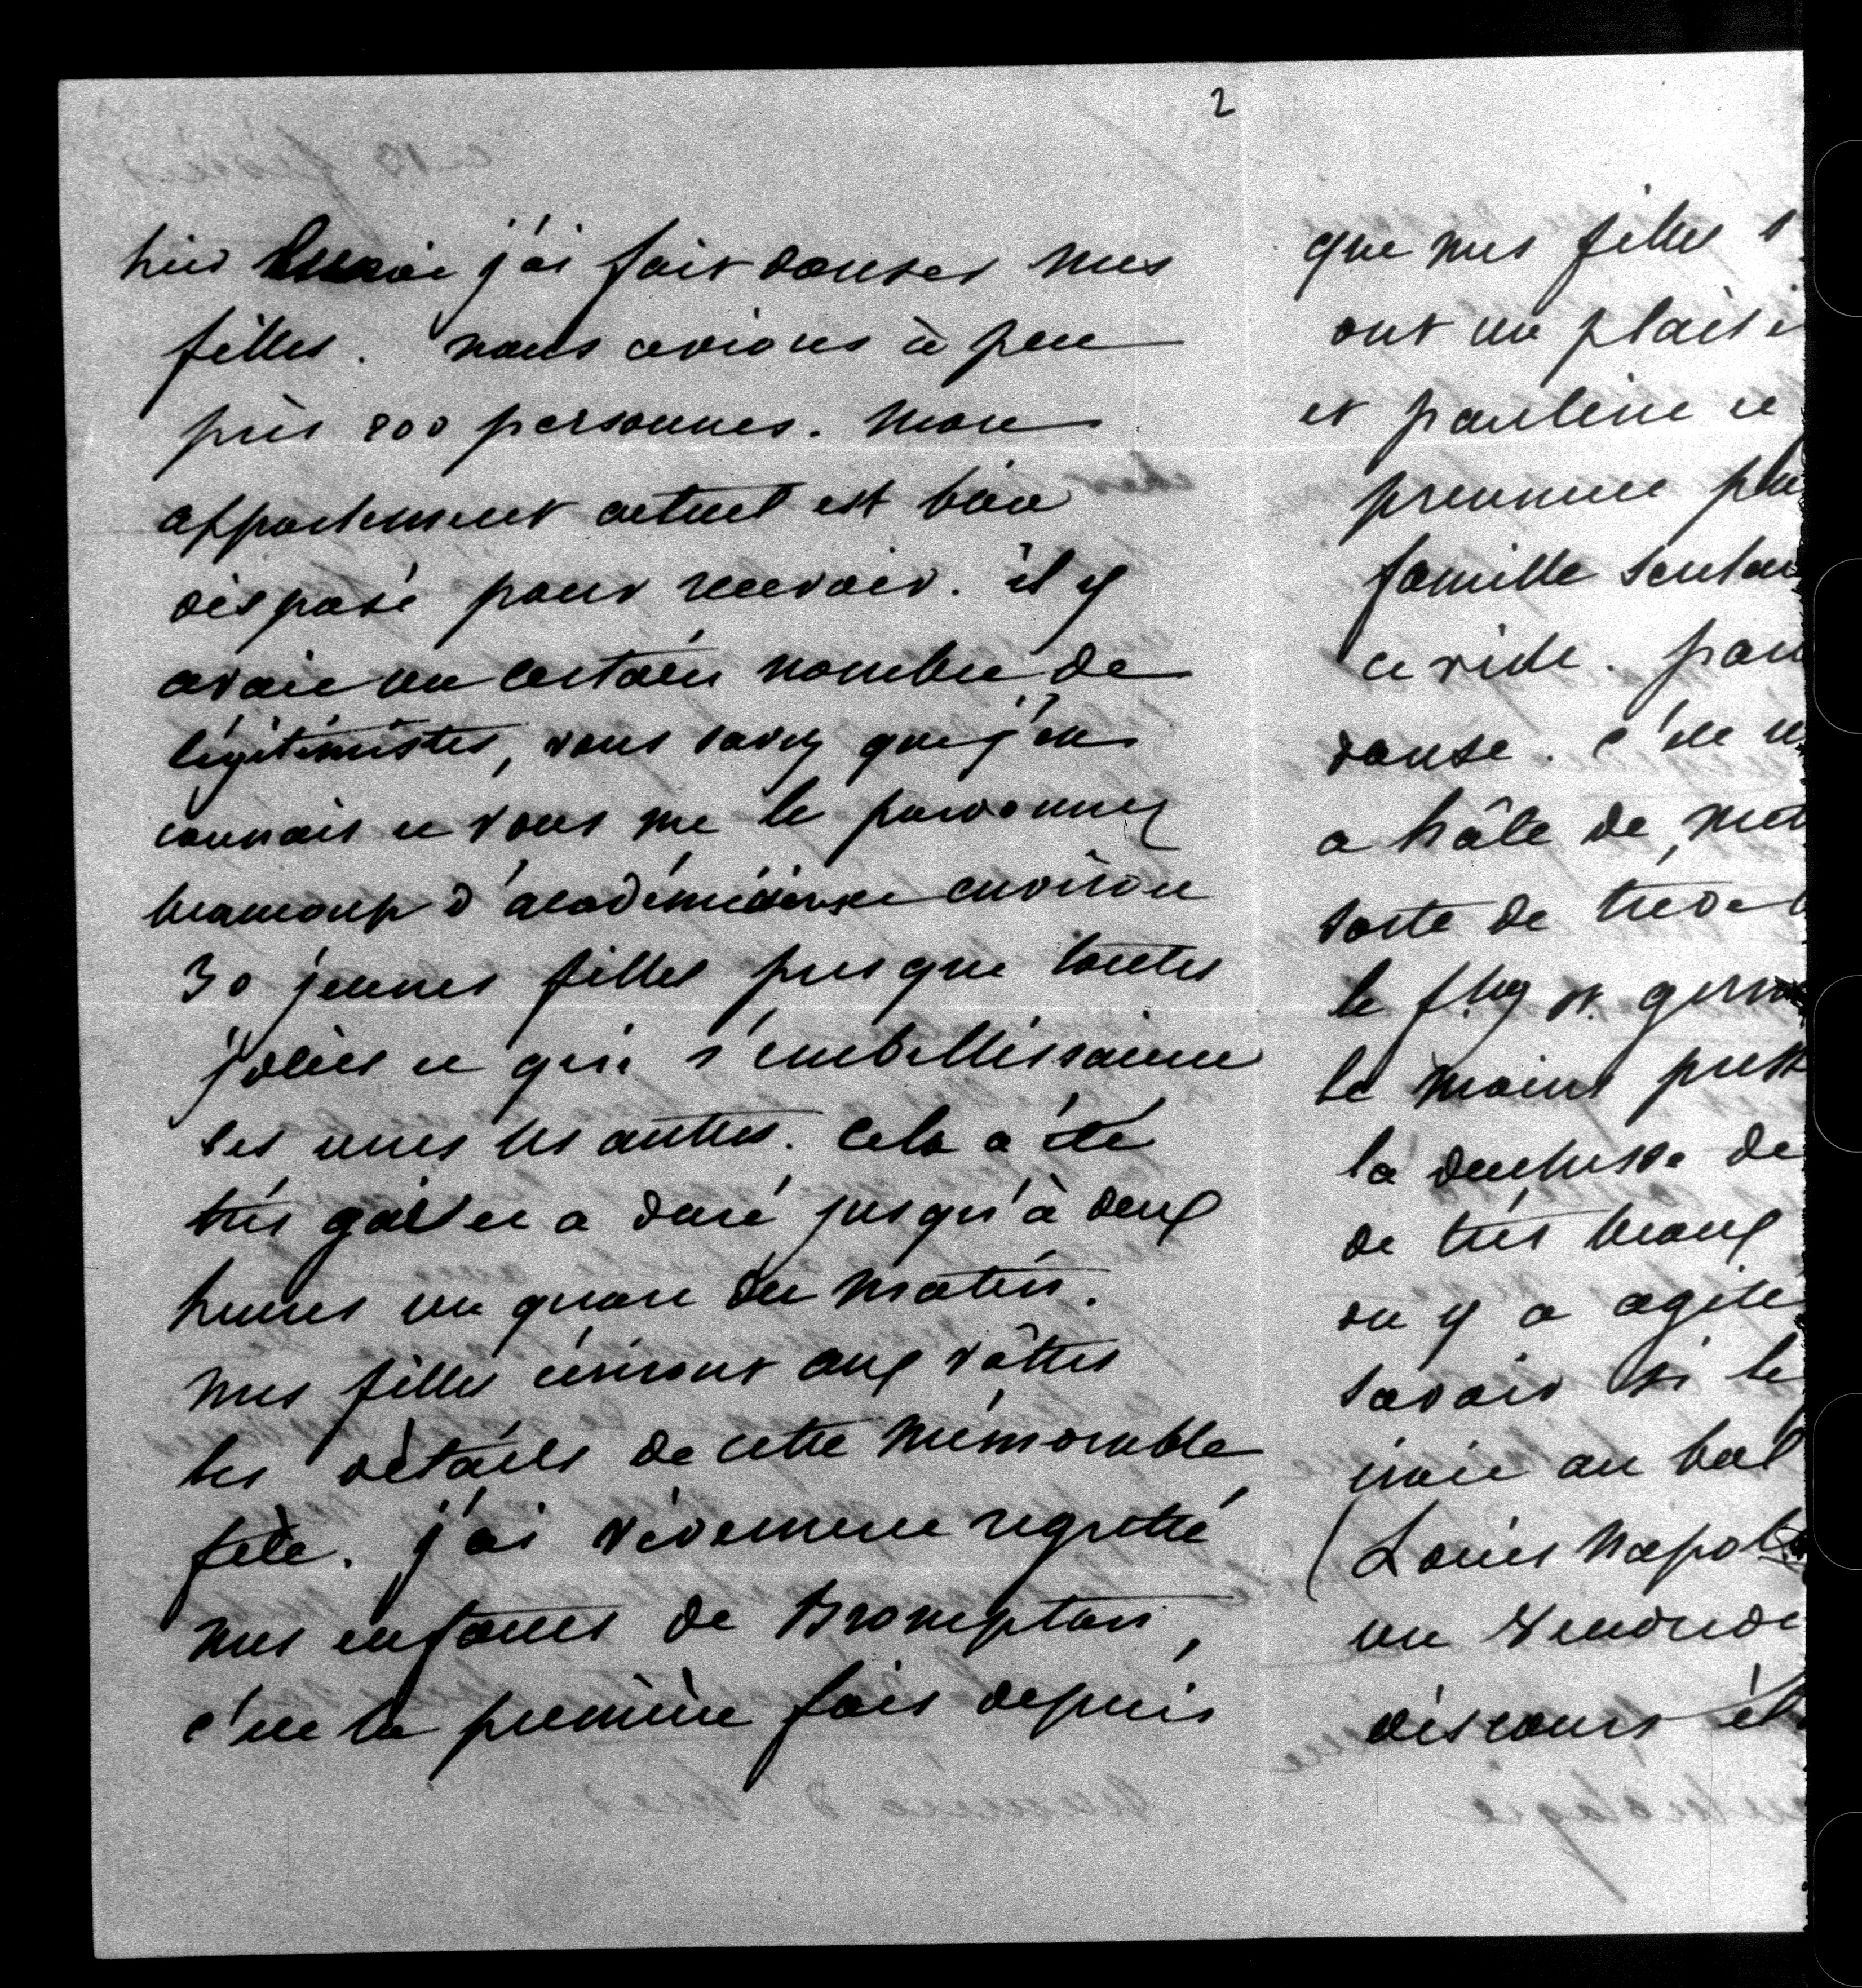 2
hier j'ai fait danser mes
filles. nous avions à peu
près 200 personnes. Mon
appartement actuel est bien
disposé pour recevoir. il y
avait un certain nombre de
légitimistes, vous savez que j'en
connais et vous me le pardonnez
beaucoup d'académiciens et environ
30 jeunes filles presque toutes
jolies et qui s'embellissaient
les unes les autres. Cela a été
très gai et a duré jusqu'à deux
heures un quart du matin.
mes filles écriront aux vôtres
les détails de cette mémorable
fête. j'ai vivement regretté
mes enfants de Brompton,
c'est la première fois depuis
que mes filles
ont un plaisi
et pauline et
prennent
famille
ce vide.
danse. c'est
a hâte de
sorte de
le fbg st. germ
le moins
la duchesse de
de très beaux
on y a agité
savoir si le
irait au bal
(Louis Napol
un
discours